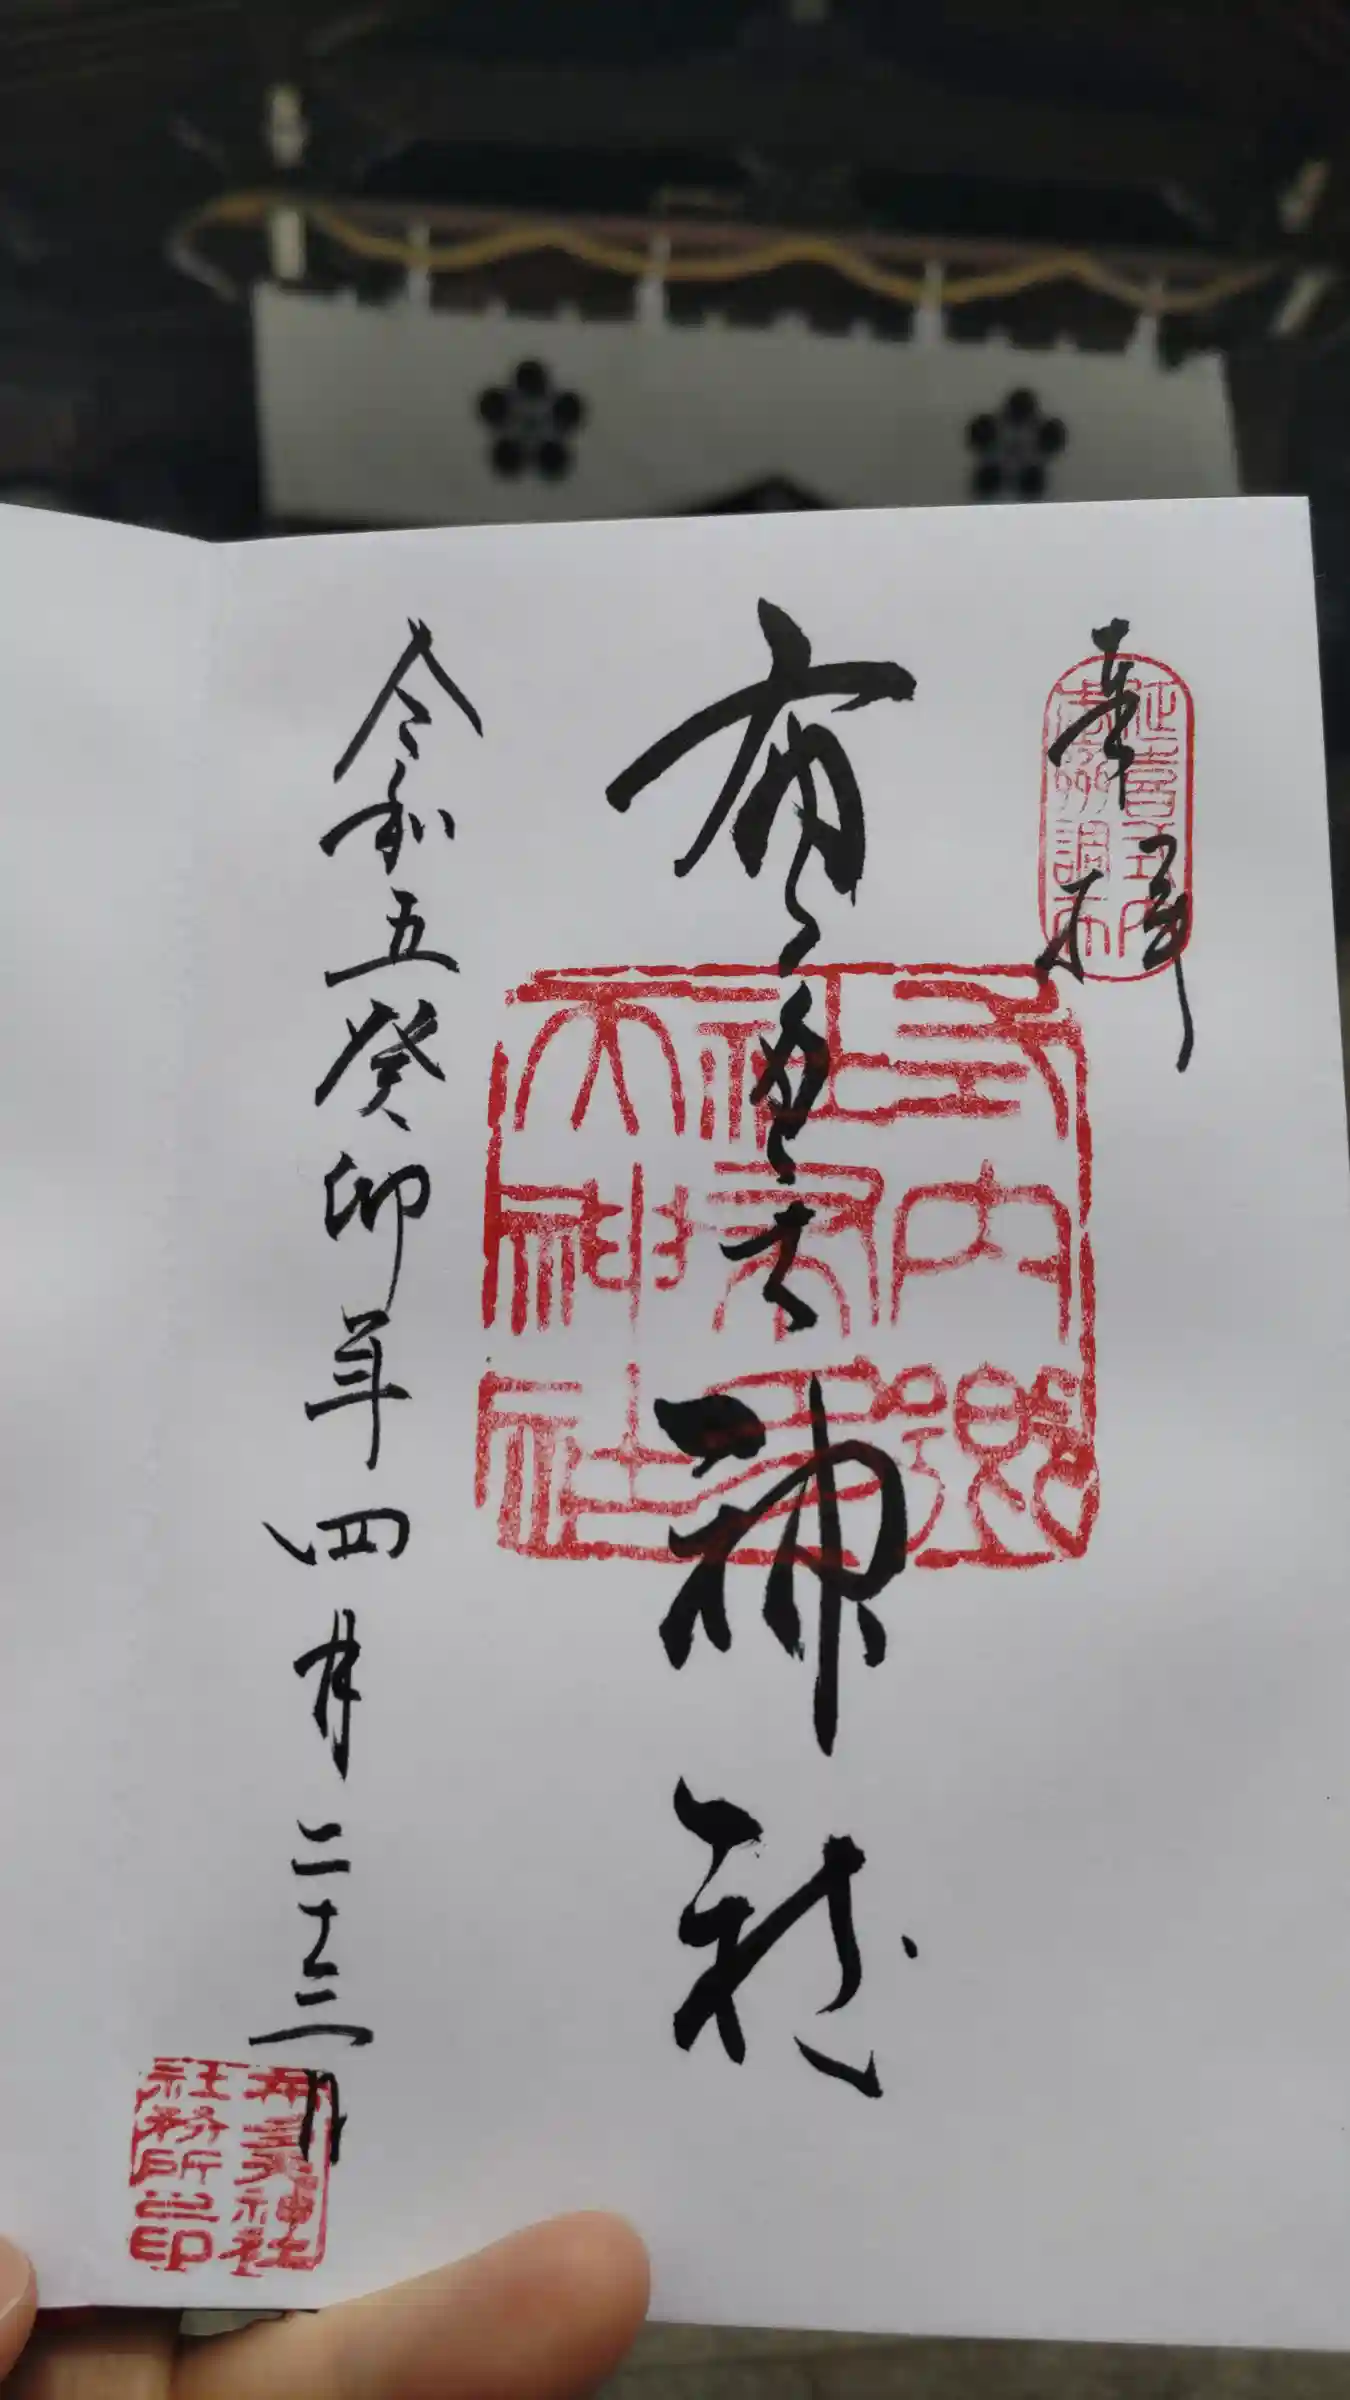 奉拝
延喜式内
武州調布
布多天神社
式内郷
社布多
天神社
令和五癸卯年四月二十三日
布多天神社
社務所之印